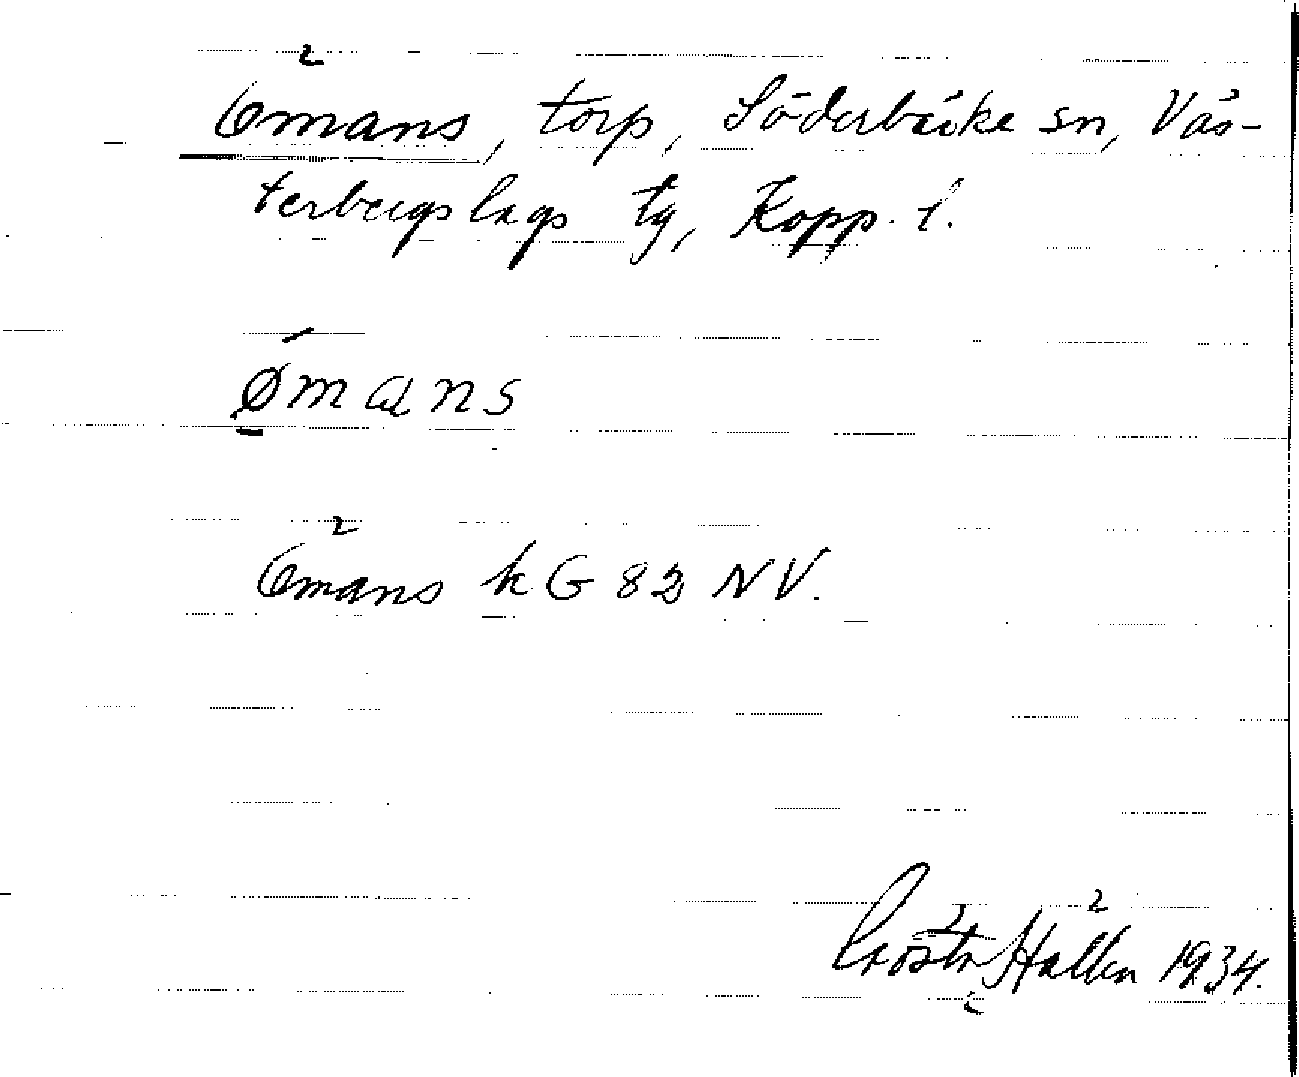 Ömans, torp, Söderbärke sn, Väs-
terbergslags tg, Kopp. l.
ømɑns
Ömans kG 82 NV.
Hallén 1934.